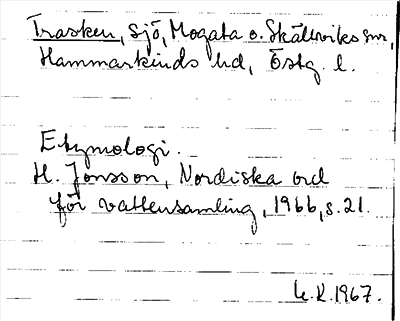 Trasken, sjö, Mogata o. Skällviks snr,
Hammarkinds hd, Östg. l.
Etymologi.
H. Jonsson, Nordiska ord
för vattensamling, 1966, s. 21.
U.K. 1967.